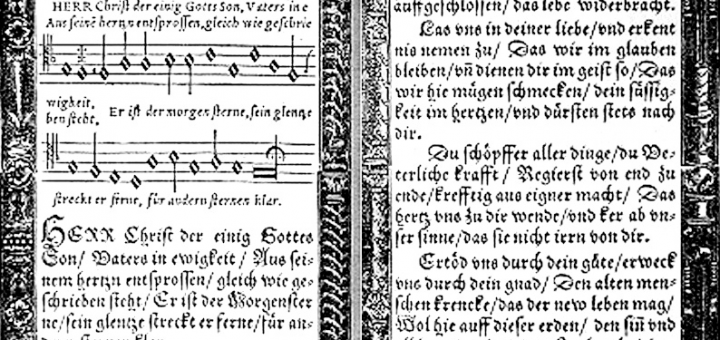 HERR Christ der einig Gotts Son, Vaters in e
Aus seinē hertzn entsprossen, gleich wie geschrie
wigkeit,
ben steht,
Er ist der morgen sterne, sein glentze
streckt er firne, für andern sternen klar.
HERR Christ der einig Gottes
Son/ Vaters in ewigkeit/ Aus sei-
nem hertzn entsprossen/ gleich wie ge-
schrieben steht/ Er ist der Morgenster
ne/sein glentze streckt er ferne/für an-
auffgeschlossen/ das lebē widerbracht.
Las vns in deiner liebe/vnd erkent
nis nemen zu/ Das wir im glauben
bleiben/vñ dienen dir im geist so/Das
wir hie mügen schmecken/ dein süssig-
keit im hertzen/vnd dürsten stets nach
dir.
Du schöpffer aller dinge/du Ve-
terliche krafft/ Regierst von end zu
ende/krefftig aus eigner macht/ Das
hertz vns zu dir wende/vnd ker ab vn-
ser sinne/das sie nicht irrn von dir.
Ertöd vns durch dein güte/erweck
vns durch dein gnad/ Den alten men-
schen krencke/das der new leben mag/
Wol hie auff dieser erden/ den sinn vnd